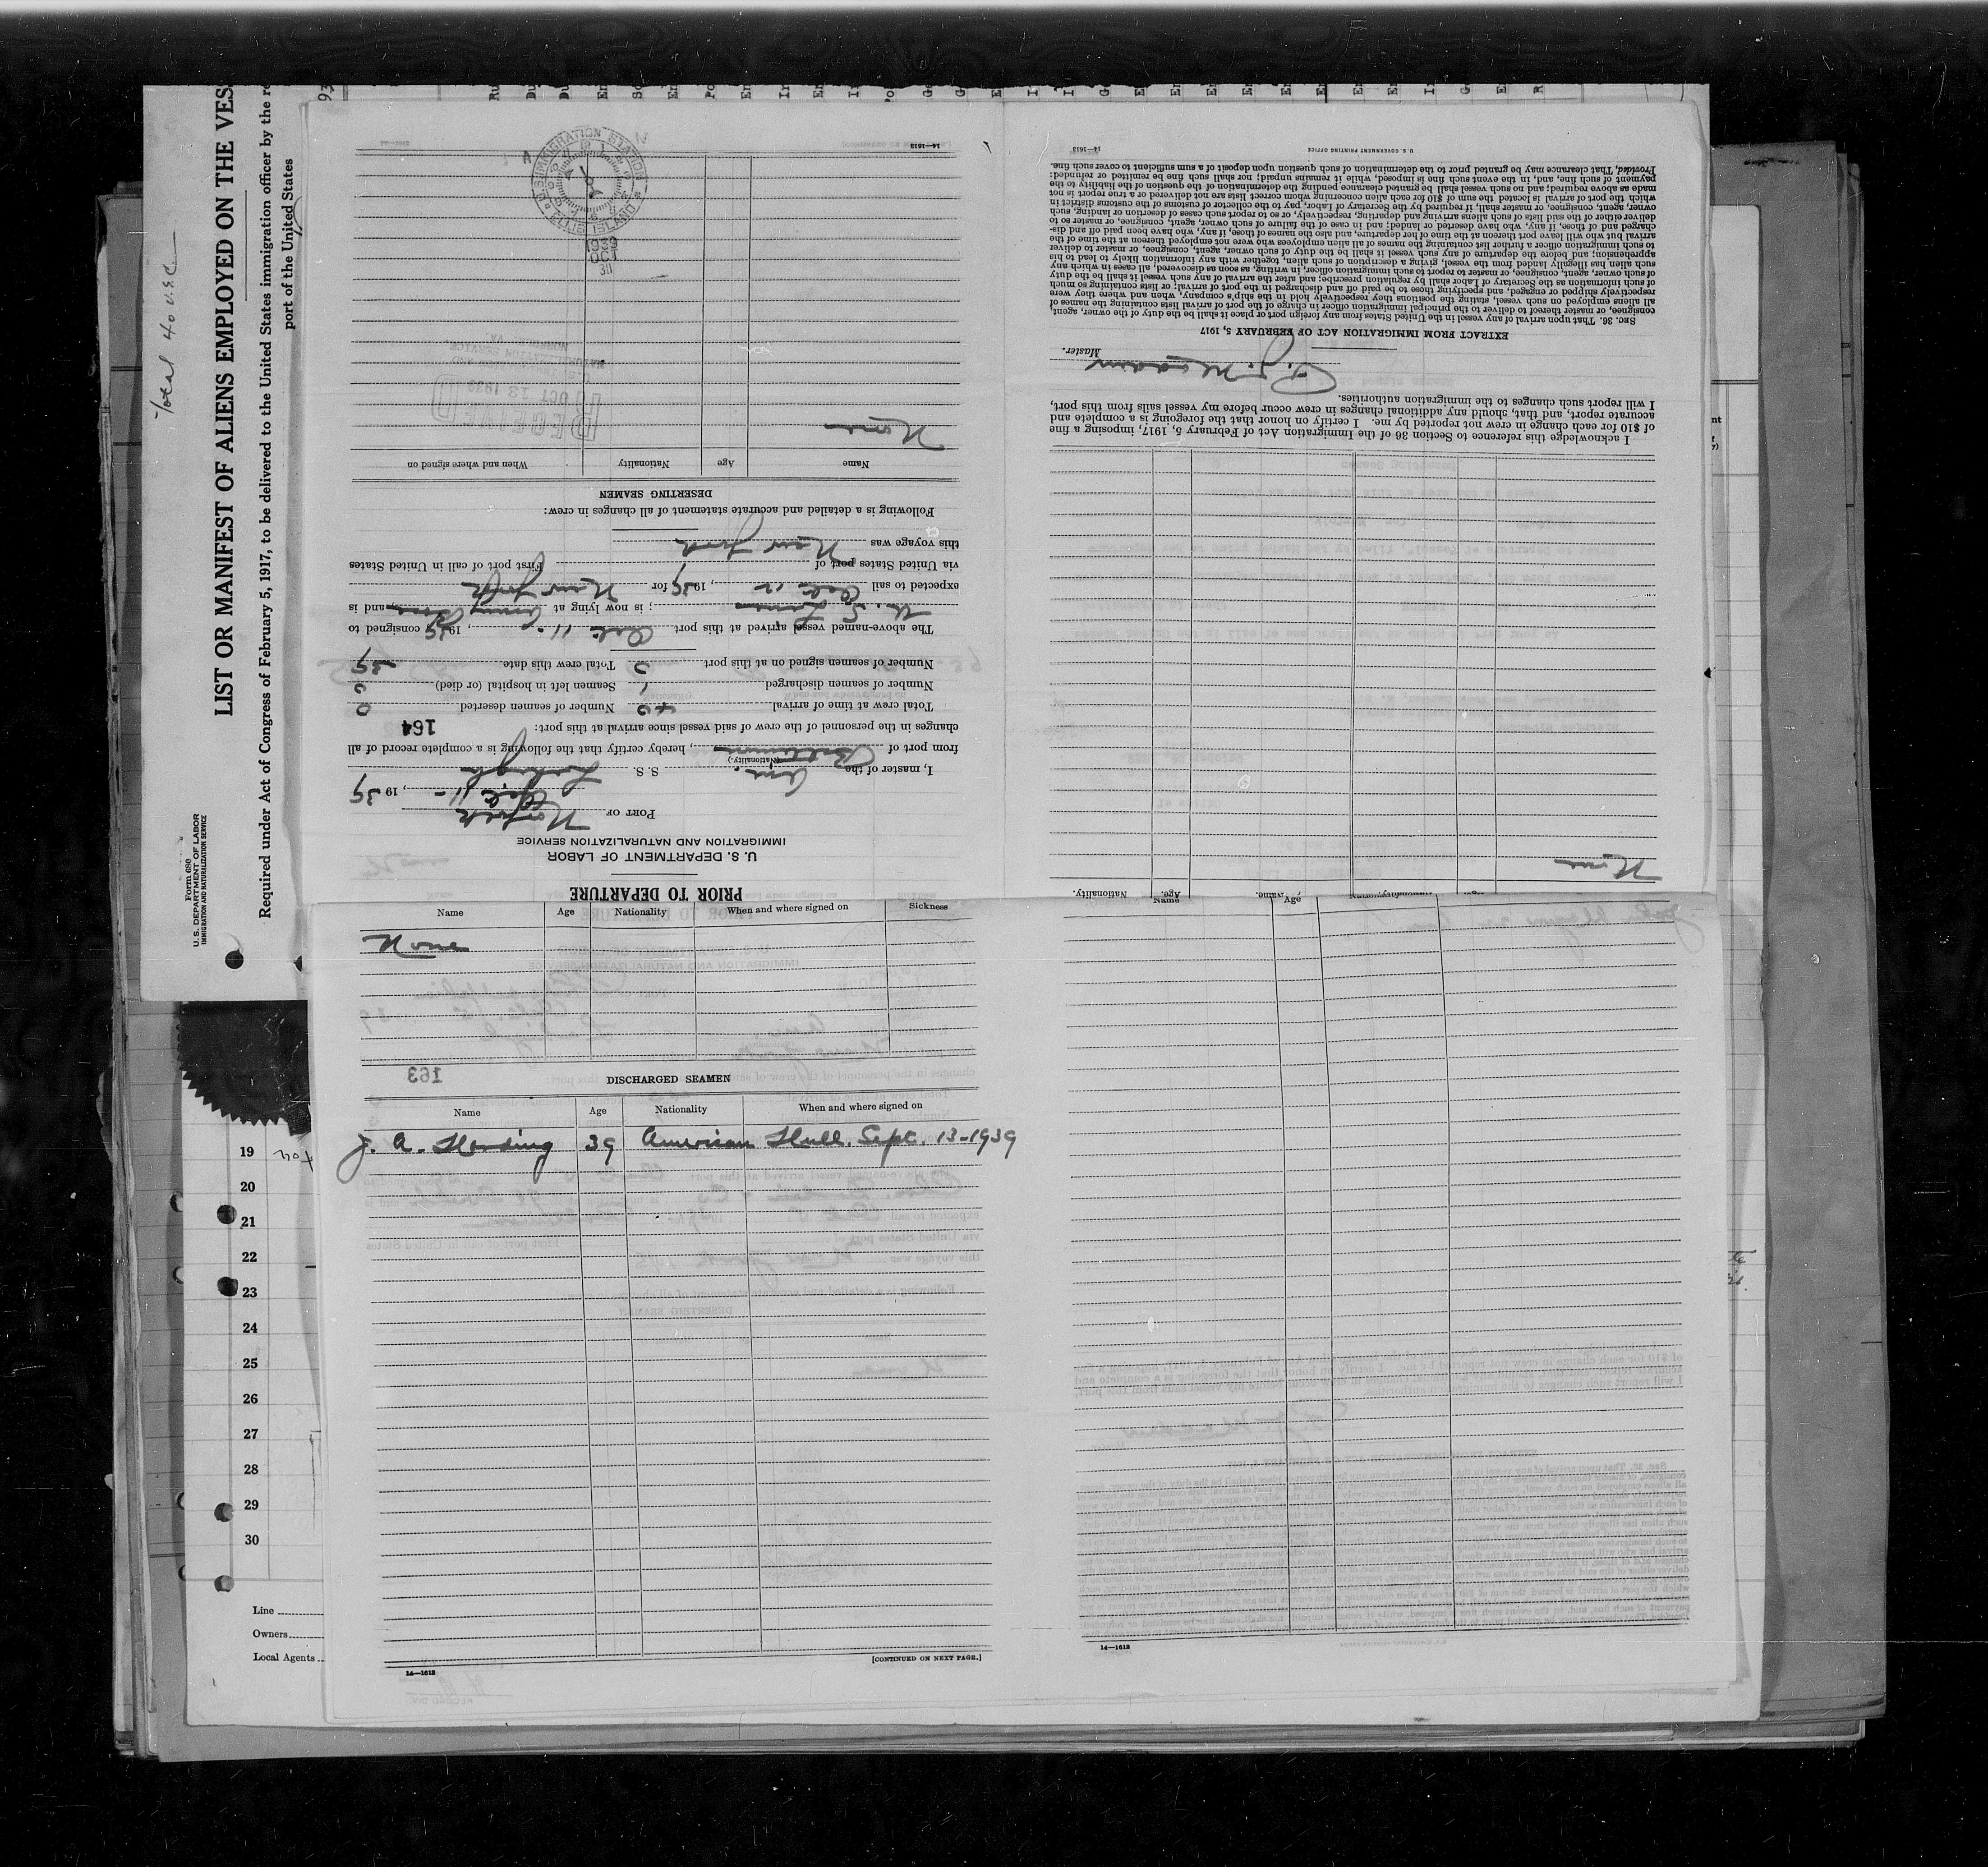 Total 40 U.S.C.
Form 680
U. S. DEPARTMENT OF LABOR
IMMIGRATION AND NATURALIZATION SERVICE
LIST OR MANIFEST OF ALIENS EMPLOYED ON THE VES
Required under Act of Congress of February 5, 1917, to be delivered to the United States immigration officer by the re
port of the United States
PRIOR TO DEPARTURE
U. S. DEPARTMENT OF LABOR
IMMIGRATION AND NATURALIZATION SERVICE
PORT OF Norfolk
Oct. 11 -, 19 39
I, master of the Am. S. S. Lehigh
(Nationality.)
from port of Baltimore, hereby certify that the following is a complete record of all
changes in the personnel of the crew of said vessel since arrival at this port: 164
Total crew at time of arrival 40 Number of seamen deserted 0
Number of seamen discharged 1 Seamen left in hospital (or died) 0
Number of seamen signed on at this port 0 Total crew this date 39
The above-named vessel arrived at this port Oct. 11 -, 1939 consigned to
U. S. Lines; is now lying at Army Base, and is
expected to sail Oct. 12, 1939 for New York
via United States port of First port of call in United States
this voyage was New York
Following is a detailed and accurate statement of all changes in crew:
DESERTING SEAMEN
Name Age Nationality When and where signed on
None
RECEIVED
OCT 13 1939
NATURALIZATION SERVICE
NORFOLK, VA.
1939
OCT
31
U.S. IMMIGRATION STATION
ELLIS ISLAND
14—1613
Name. Age. Nationality.
None
I acknowledge this reference to Section 36 of the Immigration Act of February 5, 1917, imposing a fine
of $10 for each change in crew not reported by me. I certify on honor that the foregoing is a complete and
accurate report, and that, should any additional changes in crew occur before my vessel sails from this port,
I will report such changes to the immigration authorities.
Master.
EXTRACT FROM IMMIGRATION ACT OF FEBRUARY 5, 1917
SEC. 36. That upon arrival of any vessel in the United States from any foreign port or place it shall be the duty of the owner, agent,
consignee, or master thereof to deliver to the principal immigration officer in charge of the port of arrival lists containing the names of
all aliens employed on such vessel, stating the positions they respectively hold in the ship's company, when and where they were
respectively shipped or engaged, and specifying those to be paid off and discharged in the port of arrival; or lists containing so much
of such information as the Secretary of Labor shall by regulation prescribe; and after the arrival of any such vessel it shall be the duty
of such owner, agent, consignee, or master to report to such immigration officer, in writing, as soon as discovered, all cases in which any
such alien has illegally landed from the vessel, giving a description of such alien, together with any information likely to lead to his
apprehension; and before the departure of any such vessel it shall be the duty of such owner, agent, consignee, or master to deliver
to such immigration officer a further list containing the names of all alien employees who were not employed thereon at the time of the
arrival but who will leave port thereon at the time of her departure, and also the names of those, if any, who have been paid off and dis-
charged and of those, if any, who have deserted or landed; and in case of the failure of such owner, agent, consignee, or master so to
deliver either of the said lists of such aliens arriving and departing, respectively, or so to report such cases of desertion or landing, such
owner, agent, consignee, or master, shall, if required by the Secretary of Labor, pay to the collector of customs of the customs district in
which the port of arrival is located the sum of $10 for each alien concerning whom correct lists are not delivered or a true report is not
made as above required; and no such vessel shall be granted clearance pending the determination of the question of the liability to the
payment of such fine, and, in the event such fine is imposed, while it remains unpaid; nor shall such fine be remitted or refunded:
Provided, That clearance may be granted prior to the determination of such question upon deposit of a sum sufficient to cover such fine.
14—1613
U. S. GOVERNMENT PRINTING OFFICE
Name Age Nationality When and where signed on Sickness
None
163
DISCHARGED SEAMEN
Name Age Nationality When and where signed on
J. A. Harding 39 American Hull. Sept. 13-1939
[CONTINUED ON NEXT PAGE.]
14—1613
Name Age
14—1613
19
20
21
22
23
24
25
26
27
28
29
30
Line
Owners
Local Agents